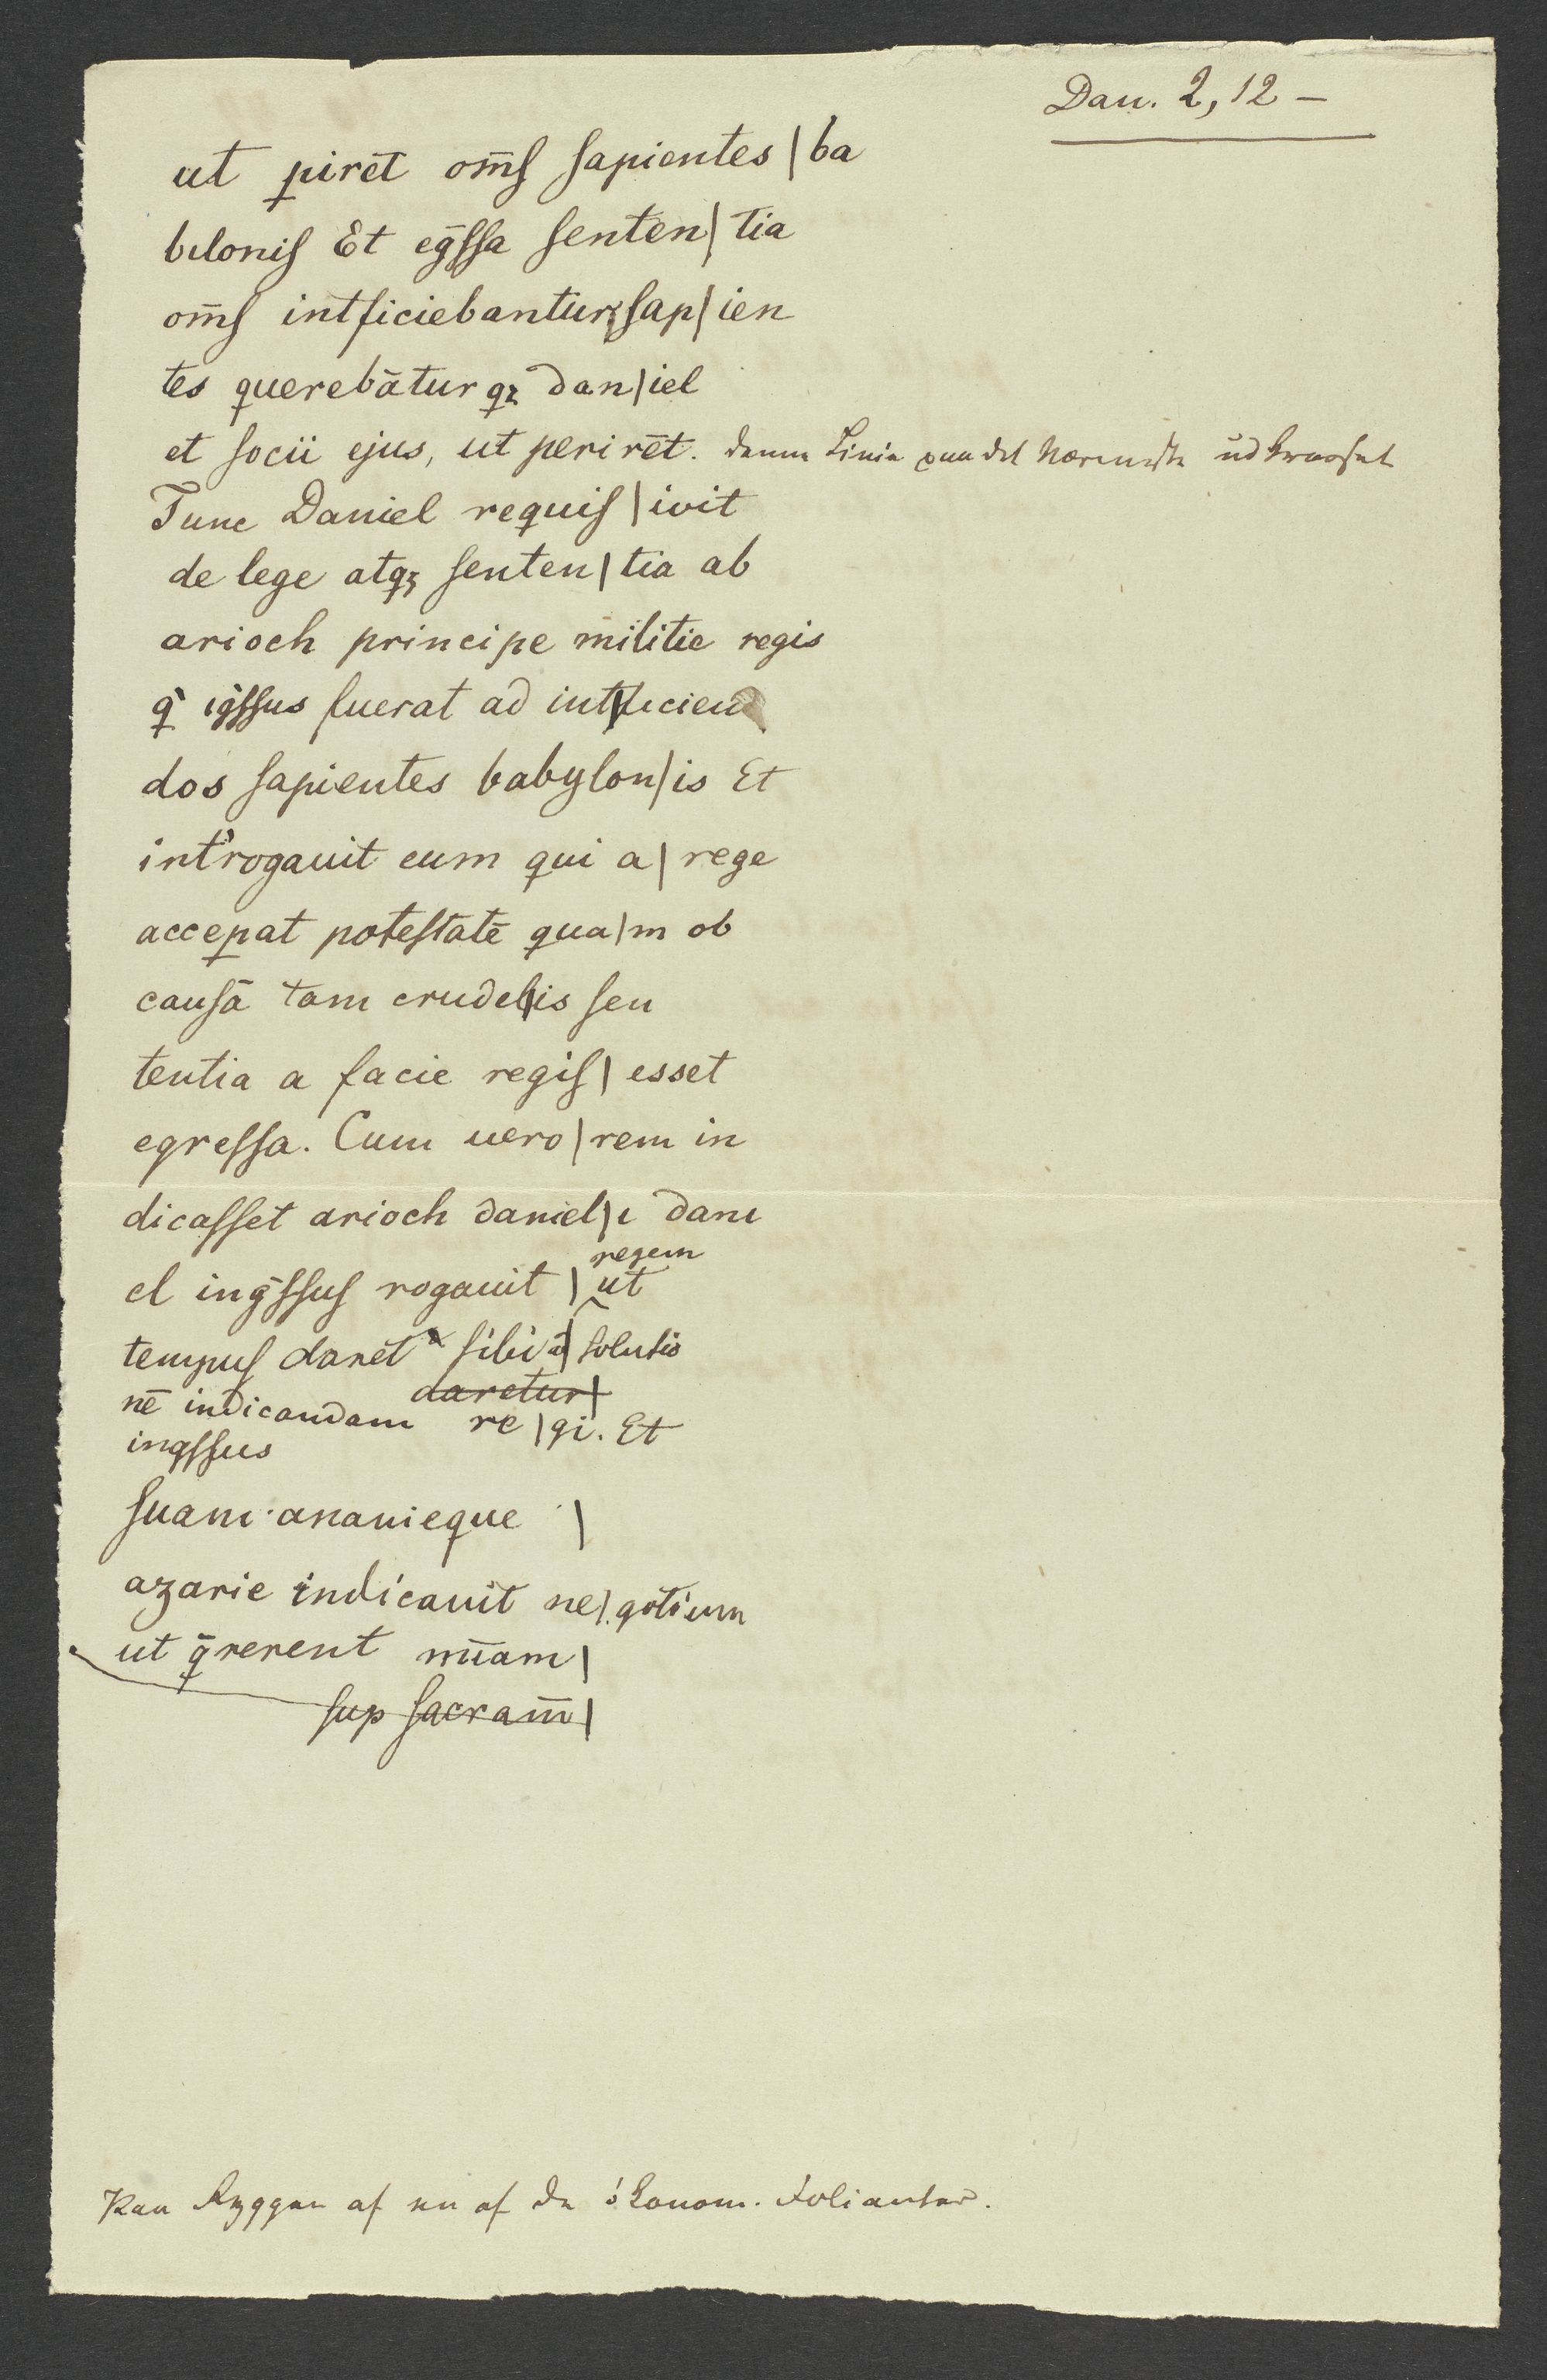 Dan. 2, 12 –
ut ꝑirēt om̄s sapientes | ba
bilonis Et eg̅ssa senten | tia
om̄s intficiebantur sap | ien
tes querebātur qꝫ dan | iel
et socii ejus, ut perirēt. denne Linie paa det Nærmeste udkradset
Tunc Daniel requis | ivit
de lege atqꝫ senten | tia ab
arioch principe militie regis
q̇ ig̅ssus fuerat ad int | ficien
dos sapientes babylon | is Et
int᷒rogauit eum qui a | rege
acceꝑat potestātē qua | m ob
causā tam crudel | is sen
tentia a facie regis | esset
egressa. Cum uero | rem in
dicasset arioch daniel | ı danı
el ing̅ssus rogauit | ut regem
tempus daret sibi ad | solutio
daretur |
nē indicandam re | gi. Et
ingssus
suam ananieque |
azarie indicauit ne | gotium
ut q̄rerent mīam |
sup sacram̄ |
Paa Ryggen af en af de økonom. Folianter.